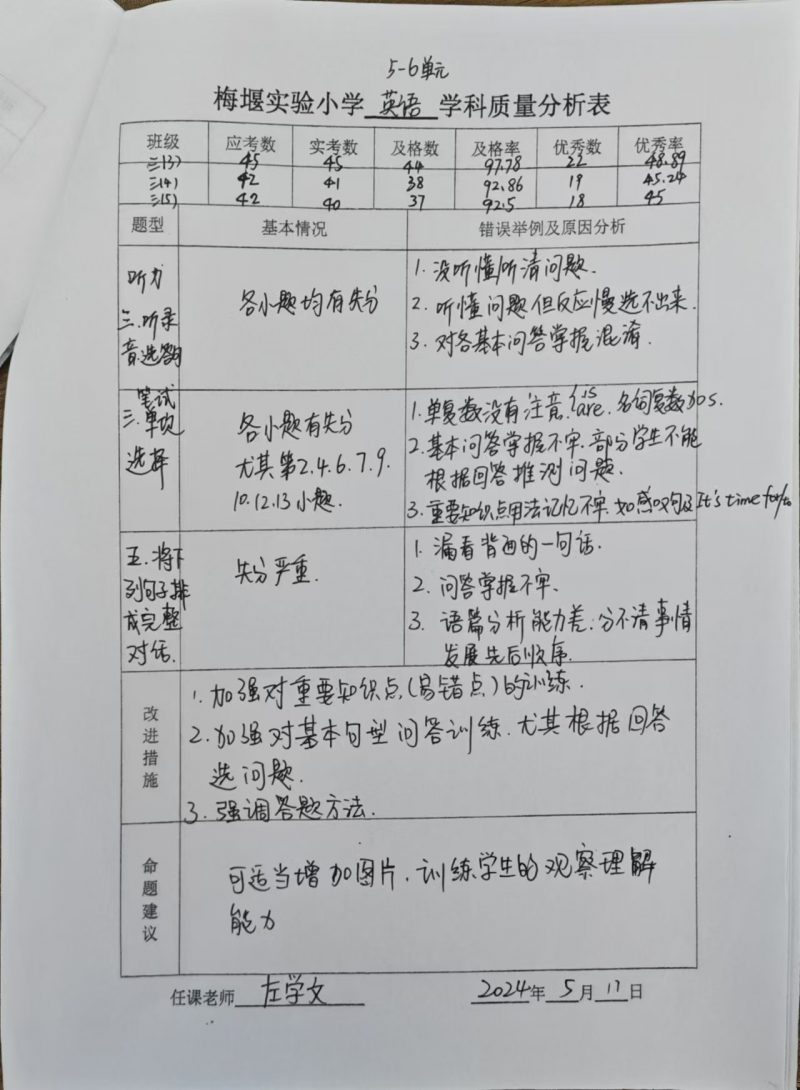 5-6单元
梅堰实验小学 英语 学科质量分析表
班级 应考数 实考数 及格数 及格率 优秀数 优秀率
三(3) 45 45 44 97.78 22 48.89
三(4) 42 41 38 92.86 19 45.24
三(5) 42 40 37 92.5 18 45
题型 基本情况 错误举例及原因分析
听力
三.听录
音,选答
各小题均有失分
1. 没听懂/听清问题.
2. 听懂问题,但反应慢选不出来.
3. 对各基本问答掌握混淆.
笔试
三.单项
选择
各小题有失分
尤其第2.4.6.7.9.
10.12.13小题.
1.单复数没有注意{is/are. 名词复数加s.
2.基本问答掌握不牢.部分学生不能
根据回答推测问题.
3.重要知识点用法记忆不牢.如感叹句及It's time for/to
五.将下
列句子排
成完整
对话.
失分严重.
1. 漏看背面的一句话.
2. 问答掌握不牢.
3. 语篇分析能力差:分不清事情
发展先后顺序.
改进措施
1.加强对重要知识点(易错点)的训练.
2.加强对基本句型问答训练.尤其根据回答
选问题.
3.强调答题方法.
命题建议
可适当增加图片.训练学生的观察理解
能力
任课老师 左学文 2024年 5月 17日